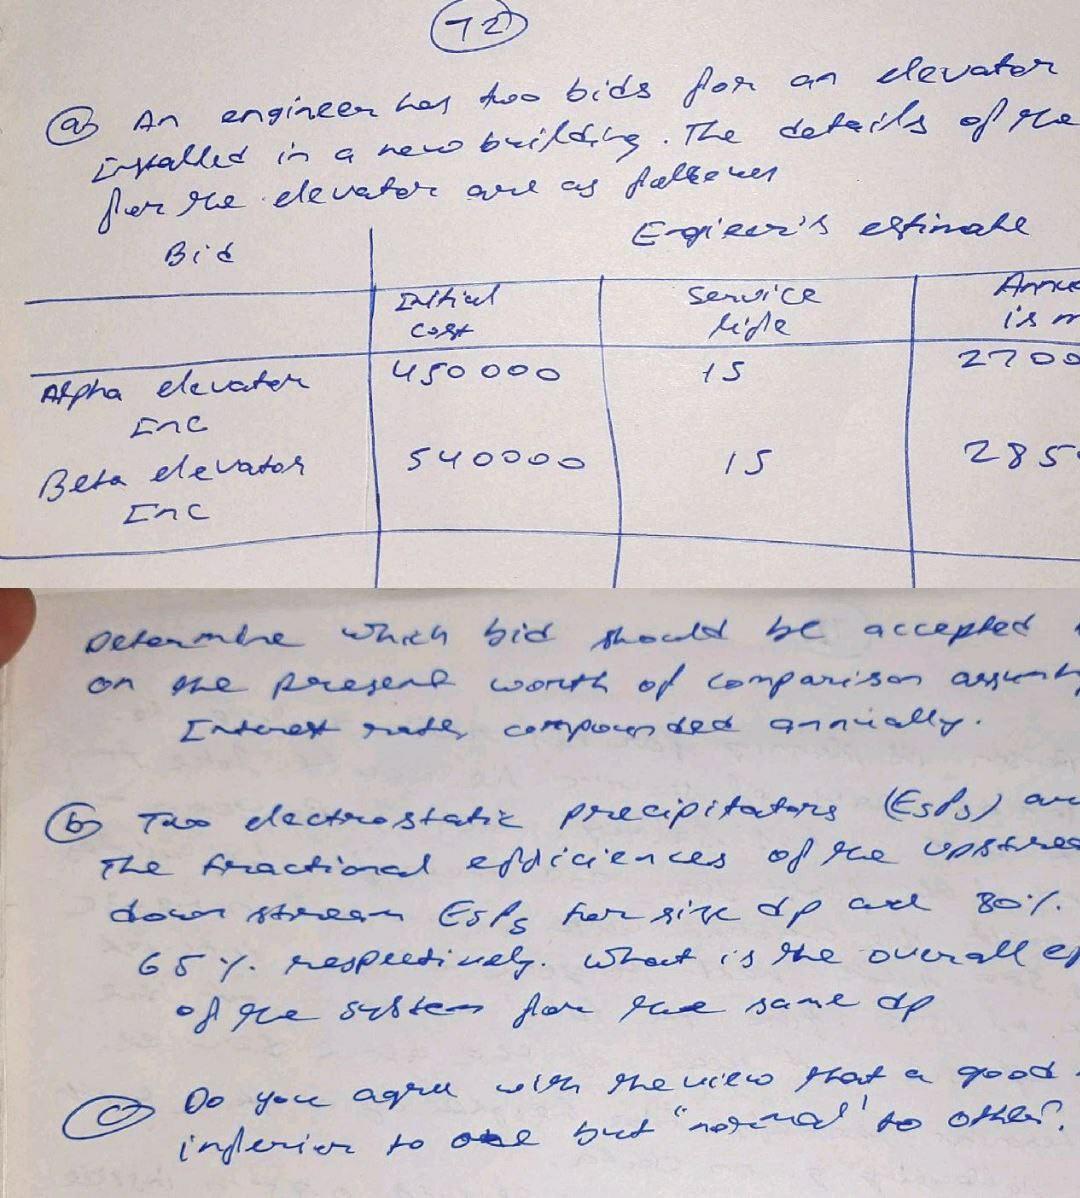 72
(a) An engineer has two bids for an elevator
Installed in a new building. The details of the
for the elevator are as follows
Bid Engieer's estimate
Initial cost Service life Annu
is m
Alpha elevator Inc 450000 15 2700
Beta elevator Inc 540000 15 285
Determine which bid should be accepted
on the present worth of comparison
Interest rate, compounded annually.
(b) Two electrostatic precipitators (ESPs) are
The fractional efficiences of the upstrea
down stream ESPs for size dp are 80%.
65%. respectively. What is the overall ef
of the system for the same dp
(c) Do you agree with the view that a good
inferior to one but "normal' to other?